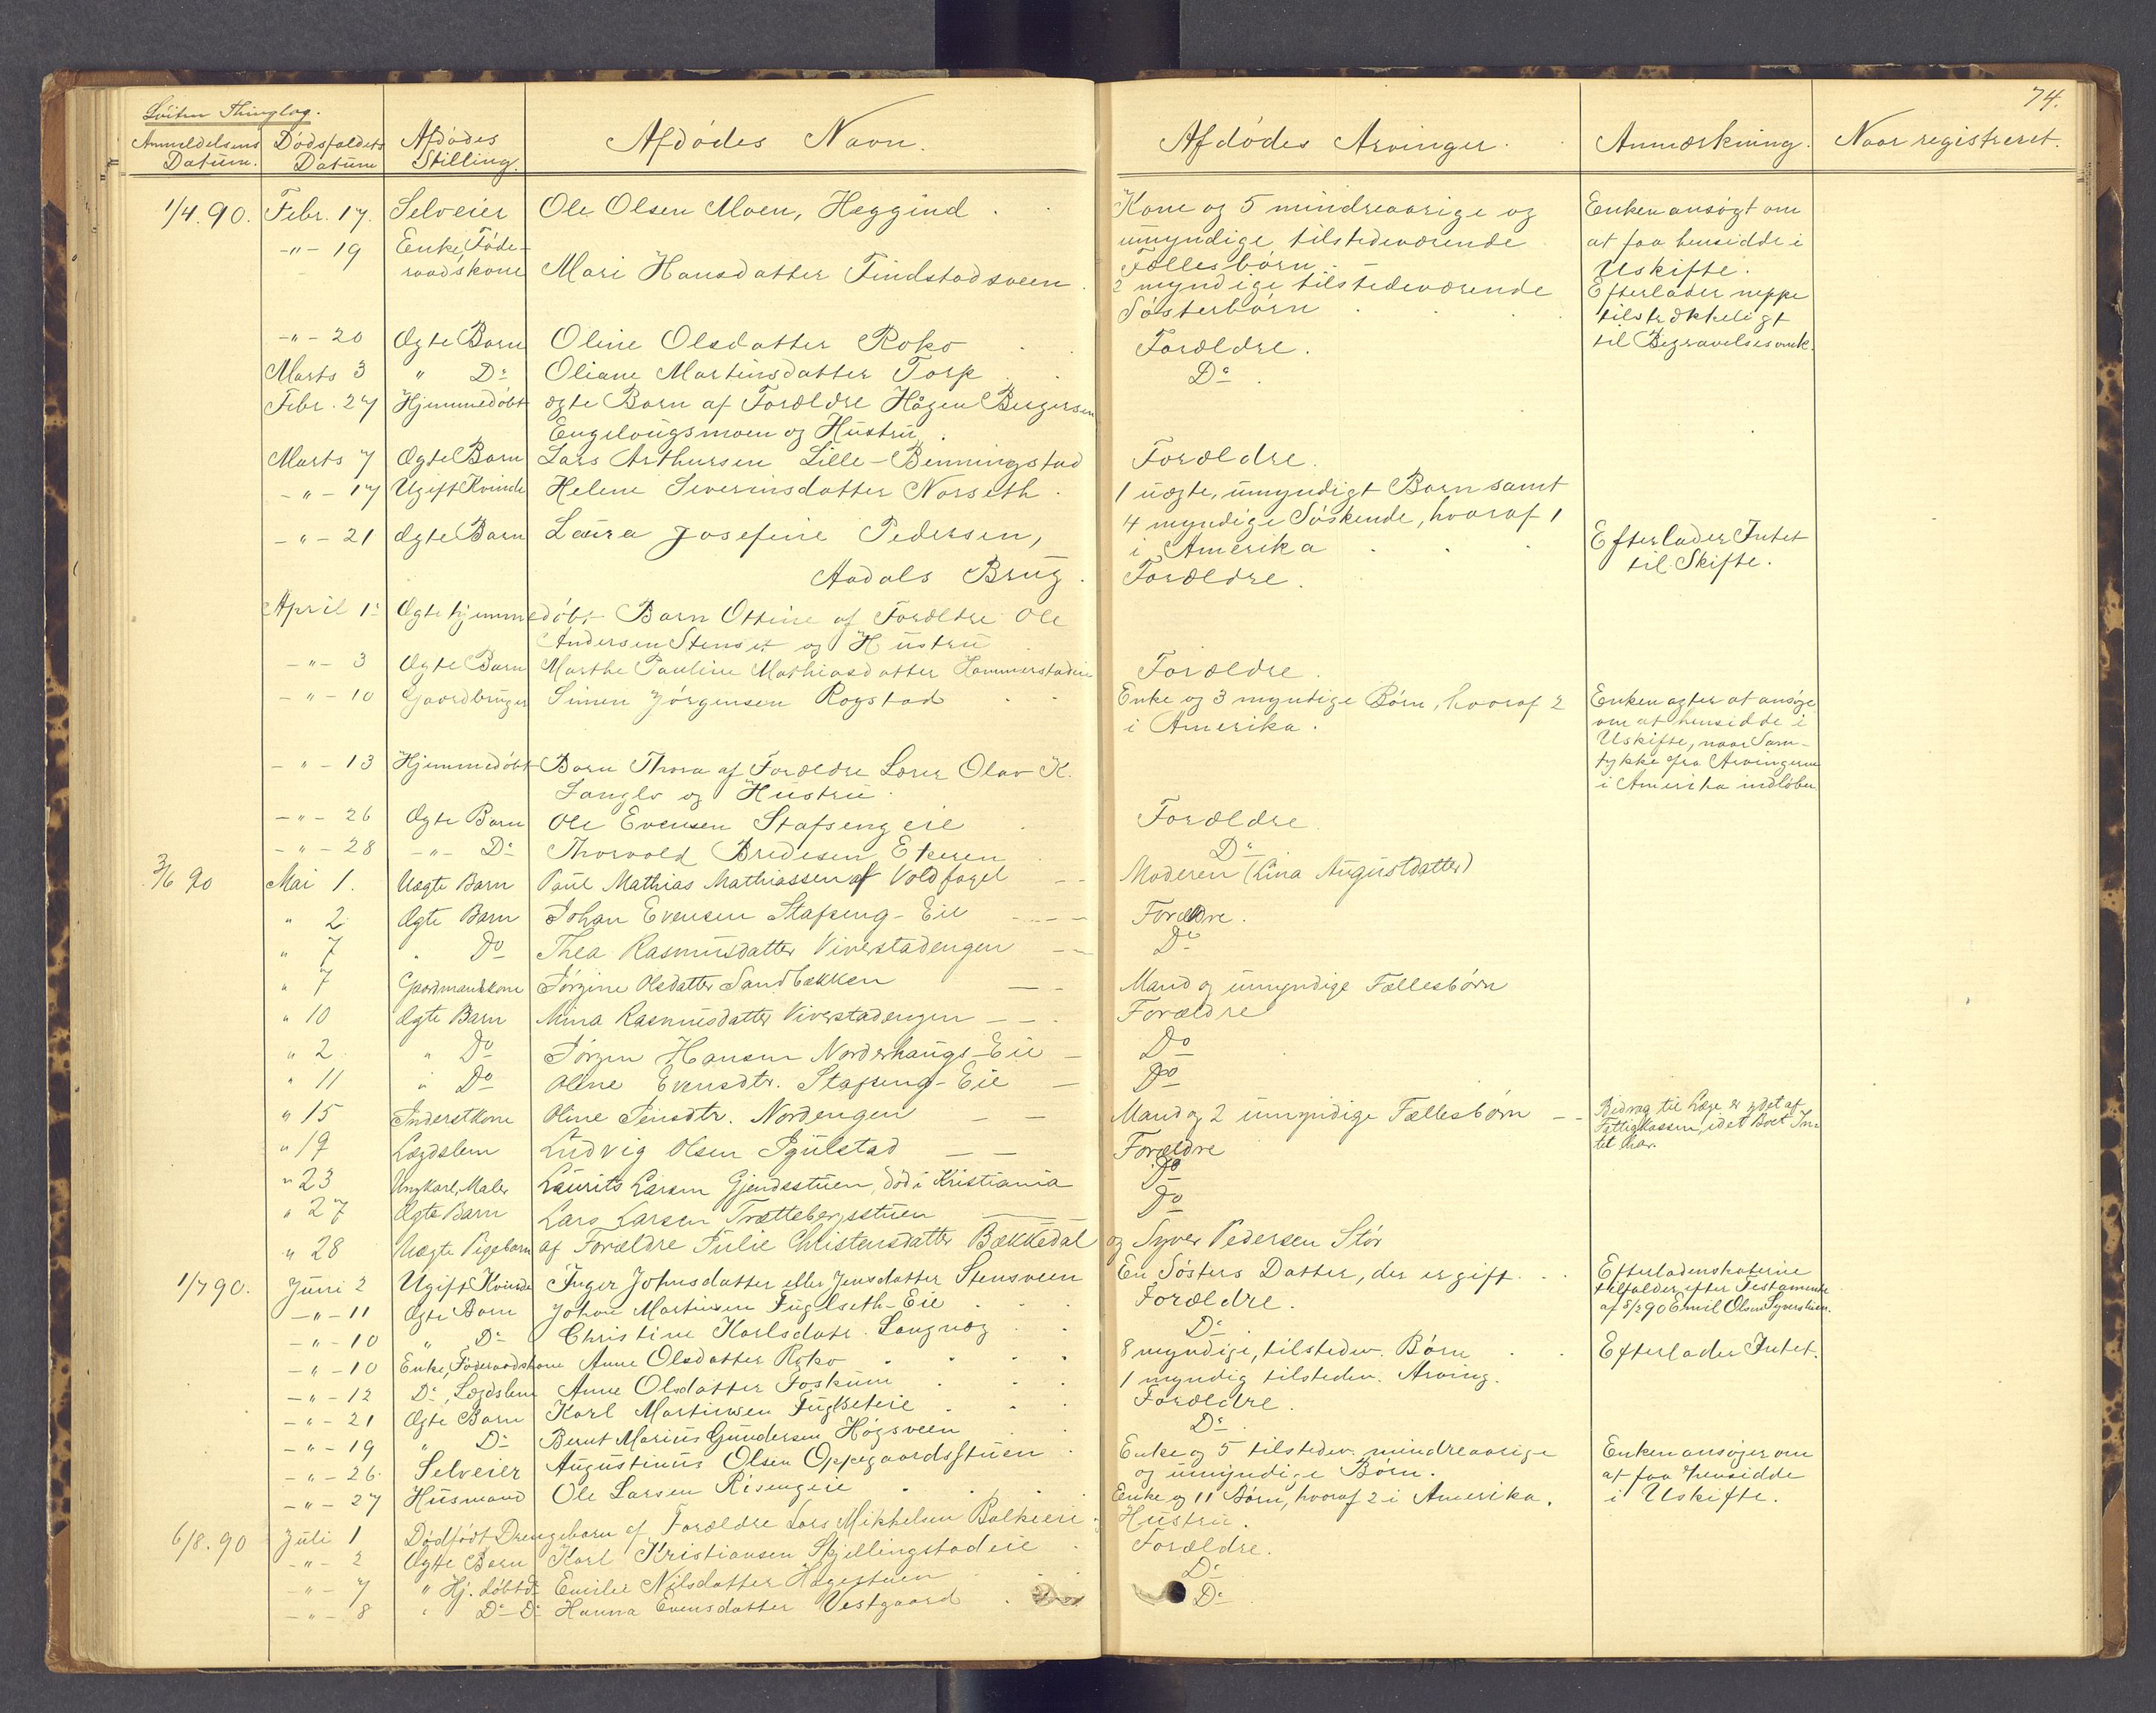 74.
Löiten Thinglag.
Anmeldelsens Datum. Dödsfaldets Datum Afdödes Stilling. Afdödes Navn. Afdödes Arvinger. Anmærkning. Naar registreret.
1/4.90. Febr. 17. Selveier Ole Olsen Moen, Heggind Kone og 5 mindreaarige og Enken ansögt om
umyndige tilstedeværende at faa hensidde i
Fællesbörn Uskifte.
-"- 19 Enke, Föde-
raadskone Mari Hansdatter Findstadsveen. 2 myndige tilstedeværende Efterlader neppe
Søsterbörn tilstrækkeligt
til Begravelsesomk.
-"- 20 Ægte Barn Oline Olsdatter Roko Forældre.
Marts 3 " Do Oliane Martinsdatter Torp Do
Febr. 27 Hjemmedöbt ægte Barn af Forældre Hågen Bergersen
Engelaugsmoen og Hustru.
Marts 7 Ægte Barn Lars Arthursen Lille-Benningstad Forældre.
-"- 17 Ugift Kvinde Helene Severinsdatter Norseth. 1 uægte, umyndigt Barn samt
4 myndige Söskende, hvoraf 1 Efterlader Intet
i Amerika til Skifte.
-"- 21 Ægte Barn Laura Josefine Pedersen,
Aadals Brug. Forældre.
April 1 Ægte hjemmedöbt Barn Ottine af Forældre Ole
Andersen Stenset og Hustru
-"- 3 Ægte Barn Marthe Pauline Mathiasdatter Hammerstadeie Forældre.
-"- 10 Gaardbruger Simen Jörgensen Rogstad Enke og 3 myndige Børn, hvoraf 2 Enken agter at ansöge
i Amerika. om at hensidde i
Uskifte, naar Sam-
tykke fra Arvingerne
i Amerika indløber
-"- 13 Hjemmedöbt Barn Thora af Forældre Lærer Olav K.
Langlo og Hustru.
-"- 26 Ægte Barn Ole Evensen Stafsengeie Forældre.
-"- 28 -"- Do Thorvald Bredesen Ekeren Do
3/6 90 Mai 1. Uægte Barn Paul Mathias Mathiassen af Voldfaget Moderen (Lina Augustdatter)
" 2 Ægte Barn Johan Evensen Stafseng-Eie Forældre.
" 7 " Do Thea Rasmusdatter Viverstadengen Do
" 7 Gaardmandskone Jörgine Olsdatter Sandbækken Mand og umyndige Fællesbörn
" 10 Ægte Barn Mina Rasmusdatter Viverstadengen Forældre
" 2 " Do Jörgen Hansen Norderhaugs-Eie Do
" 11 " Do Oline Evensdtr. Stafseng-Eie Do
" 15 Inderstkone Oline Jensdtr. Nordengen Mand og 2 umyndige Fællesbörn Bidrag til Læge er ydet af
Fattigkassen, idet Boet In-
tet har.
" 19 Lægdslem Ludvig Olsen Igulstad Forældre
" 23 Ungkarl, Maler Laurits Larsen Gjendsstuen, död i Kristiania Do
" 27 Ægte Barn Lars Larsen Trættebergsstuen Do
" 28 Uægte Pigebarn af Forældre Julie Christensdatter Bækkedal og Syver Pedersen Stör
1/7 90. Juni 2 Ugift Kvinde Inger Johnsdatter eller Jensdatter Stensveen En Søsters Datter, der er gift. Efterladenskaberne
tilfalder efter Testamente
af 8/2 90 Emil Olsen Syverstuen.
-"- 11 Ægte Barn Johan Martinsen Fuglseth-Eie Forældre.
-"- 10 " Do Christine Karlsdatr. Langvæg Do
-"- 10 Enke, Föderaadskone Anne Olsdatter Roko 8 myndige, tilstedev. Børn Efterlader Intet.
-"- 12 Do, Lægdslem Anne Olsdatter Foskum 1 myndig tilstedev. Arving.
-"- 21 Ægte Barn Karl Martinsen Fuglseteie Forældre.
-"- 19 " Do Bernt Marius Gundersen Högsveen Do
-"- 26 Selveier Augustinus Olsen Oppegaardsstuen Enke og 5 tilstedev. mindreaarige Enken ansöger om
og umyndige Børn. at faa hensidde
-"- 27 Husmand Ole Larsen Risengeie Enke og 11 Børn, hvoraf 2 i Amerika. i Uskifte.
6/8.90 Juli 1 Dödfödt Drengebarn af Forældre Lars Mikkelsen Balkeeie og Hustru.
-"- 2 Ægte Barn Karl Kristiansen Skjellingstadeie Forældre.
-"- 7 " Hj. döbt Do Emilie Nilsdatter Hagestuen Do
-"- 8 " Do Do Hanna Evensdatter Vestgaard Do